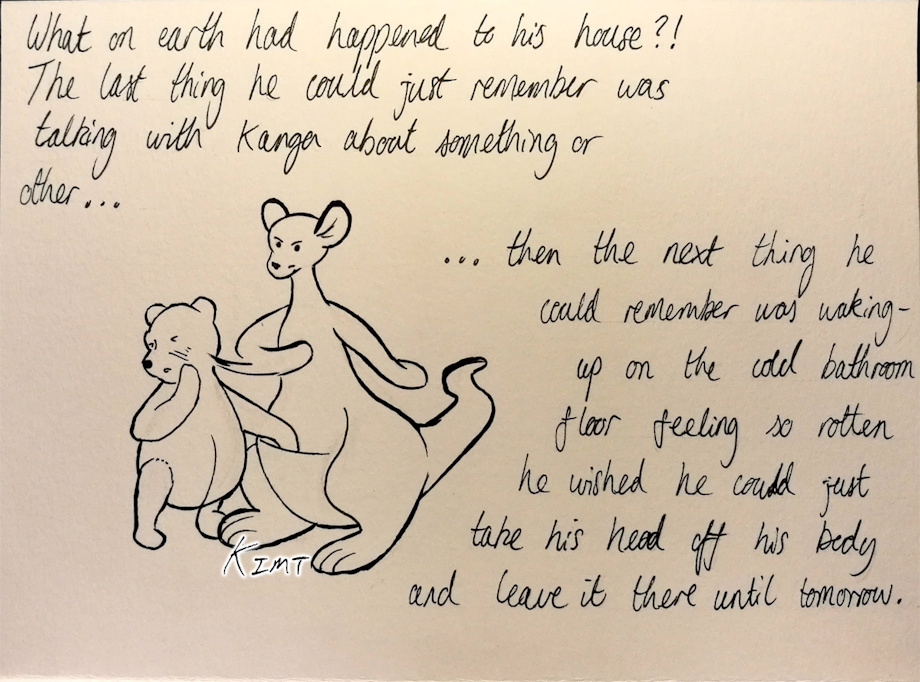 What on earth had happened to his house?!
The last thing he could just remember was
talking with Kanga about something or
other...
... then the next thing he
could remember was waking-
up on the cold bathroom
floor feeling so rotten
he wished he could just
take his head off his body
and leave it there until tomorrow.
KIMT